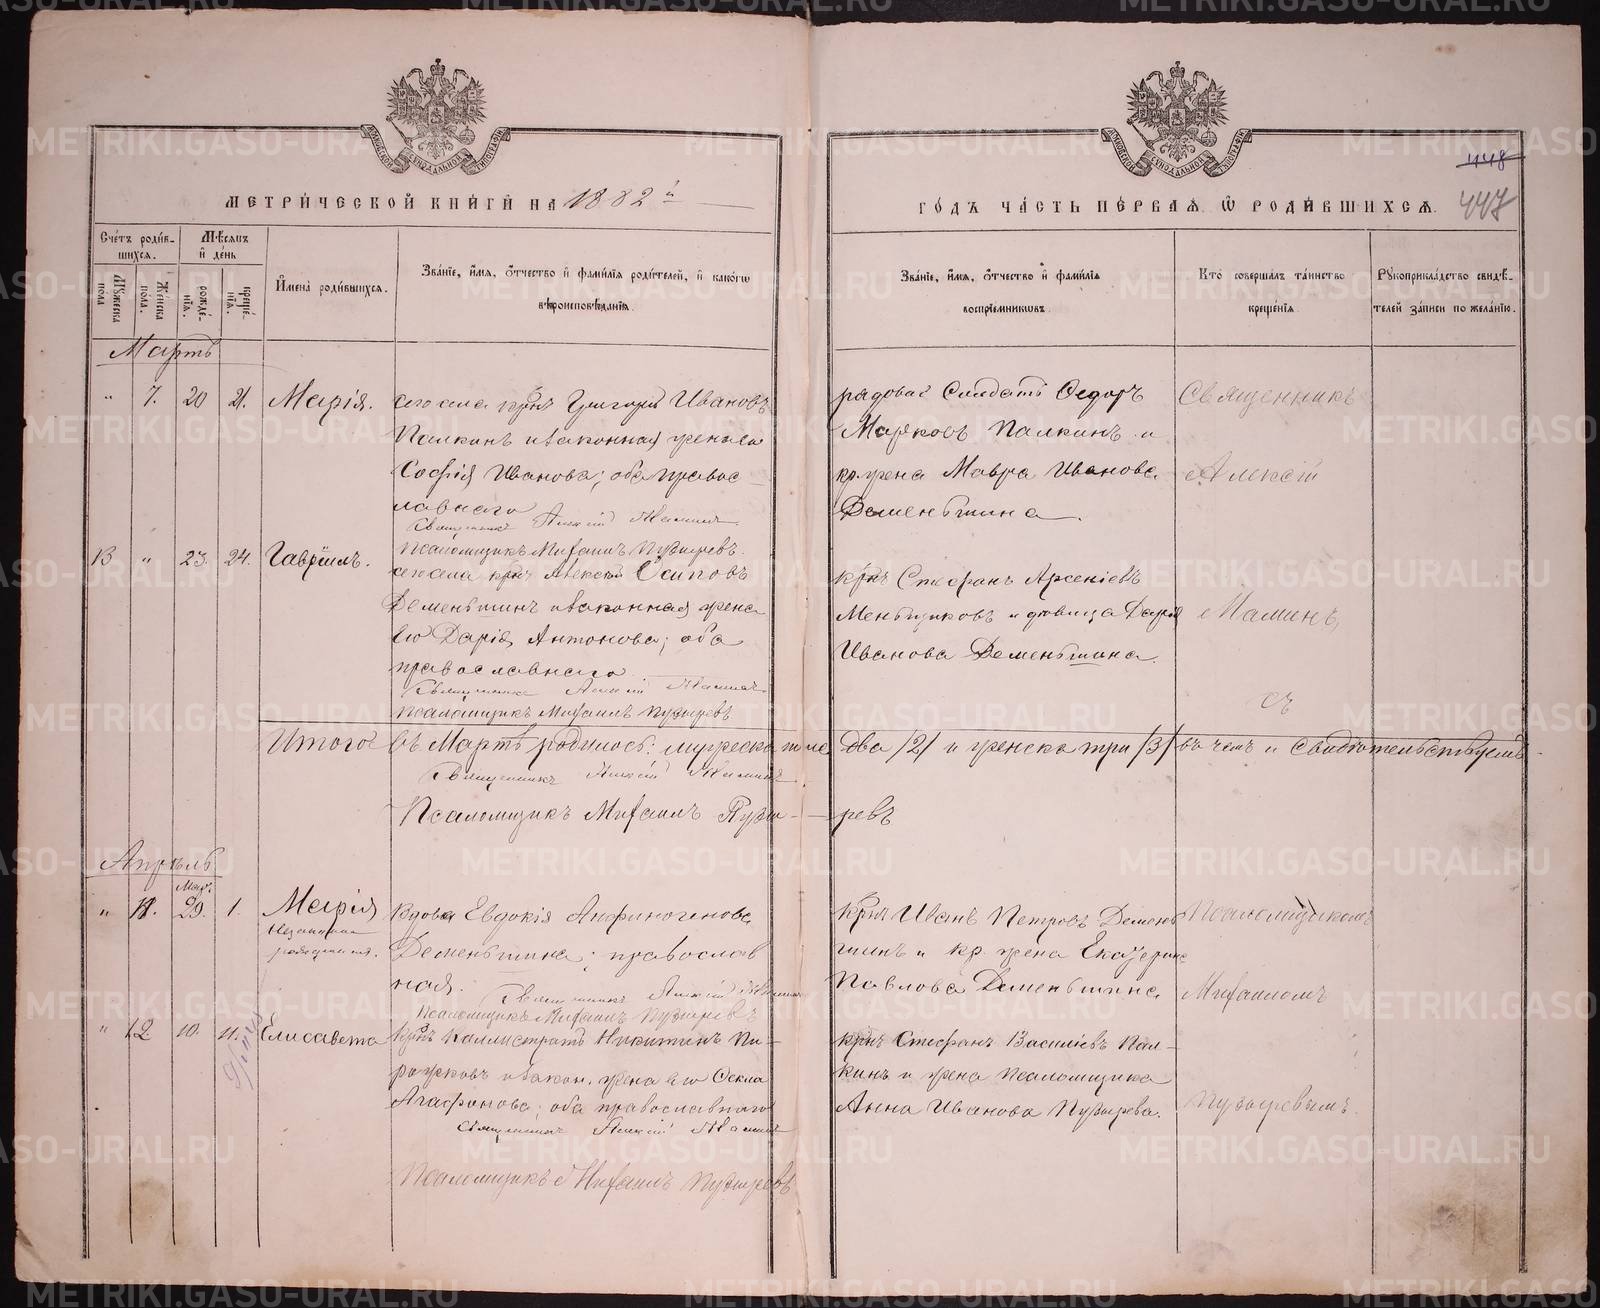 МЕТРИ́ЧЕСКОЙ КНИ́ГИ НА 1882 й
ГО́ДЪ ЧА́СТЬ ПЕ́РВАЯ Ѡ РОДИ́ВШИХСЯ.
448
447
Сче́тъ роди́в-
шихся.
Му́жеска по́ла
Же́нска по́ла.
Мѣ́сяцъ и де́нь
рожде́-
нїя.
креще́-
нїя.
И҆мена̀ роди́вшихся.
Зва́нїе, и҆́мя, ѻ҆́тчество и҆ фами́лїя роди́телей, и҆ како́гѡ
вѣроисповѣ́данїя.
Зва́нїе, и҆́мя, ѻ҆́тчество и҆ фами́лїя
воспрїе́мниковъ.
Кто̀ соверша́лъ та́инство
креще́нїя.
Рꙋкоприкла́дство свидѣ́-
телей за́писи по жела́нїю.
Мартъ
" 7. 20 21. Марія.
сего села крнъ Григорій Ивановъ
Палкинъ и законная жена его
Софія Иванова; оба правос-
лавнаго
Священникъ Алексій Маминъ
Псаломщикъ Михаилъ Пузыревъ.
рядовой Солдатъ Ѳедоръ
Марковъ Палкинъ и
кр. жена Мавра Иванова
Деменьшина.
Священникъ
Алексій
13 " 23. 24. Гавріилъ.
сего села крнъ Алексій Осиповъ
Деменьшинъ и законная жена
его Дарія Антонова; оба
православнаго
Священникъ Алексій Маминъ
Псаломщикъ Михаилъ Пузыревъ
крнъ Стефанъ Арсеніевъ
Меньщиковъ и дѣвица Дарія
Иванова Деменьшина.
Маминъ
съ
Итого въ Мартѣ родилось: мужеска пола два /2/ и женска три /3/ въ чемъ и свидѣтельствуемъ
Священникъ Алексій Маминъ
Псаломщикъ Михаилъ Пузыревъ
Апрѣль
Мар.
" 11. 29. 1. Марія
незаконно
рожденная.
Вдова Евдокія Анфиногенова
Деменьшина; православ
ная.
Священникъ Алексій Маминъ
Псаломщикъ Михаилъ Пузыревъ
крнъ Иванъ Петровъ Демень
шинъ и кр. жена Екатерина
Павлова Деменьшина
Псаломщикомъ
Михаиломъ
" 12 10. 11. Елисавета
крнъ Каллистратъ Никитинъ Пи-
рожковъ и закон. жена его Ѳекла
Агафонова; оба православнаго
Священникъ Алексій Маминъ
Псаломщикъ Михаилъ Пузыревъ
крнъ Стефанъ Василіевъ Пал-
кинъ и жена псаломщика
Анна Иванова Пузырева.
Пузыревымъ.